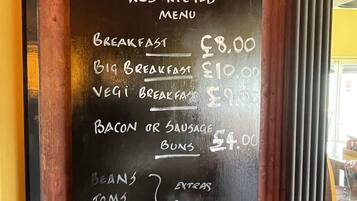 RESTRICTED
MENU
BREAKFAST £8.00
BIG BREAKFAST £10.00
VEGI BREAKFAST £9.00
BACON OR SAUSAGE
BUNS £4.00
BEANS
TOMS
EXTRAS